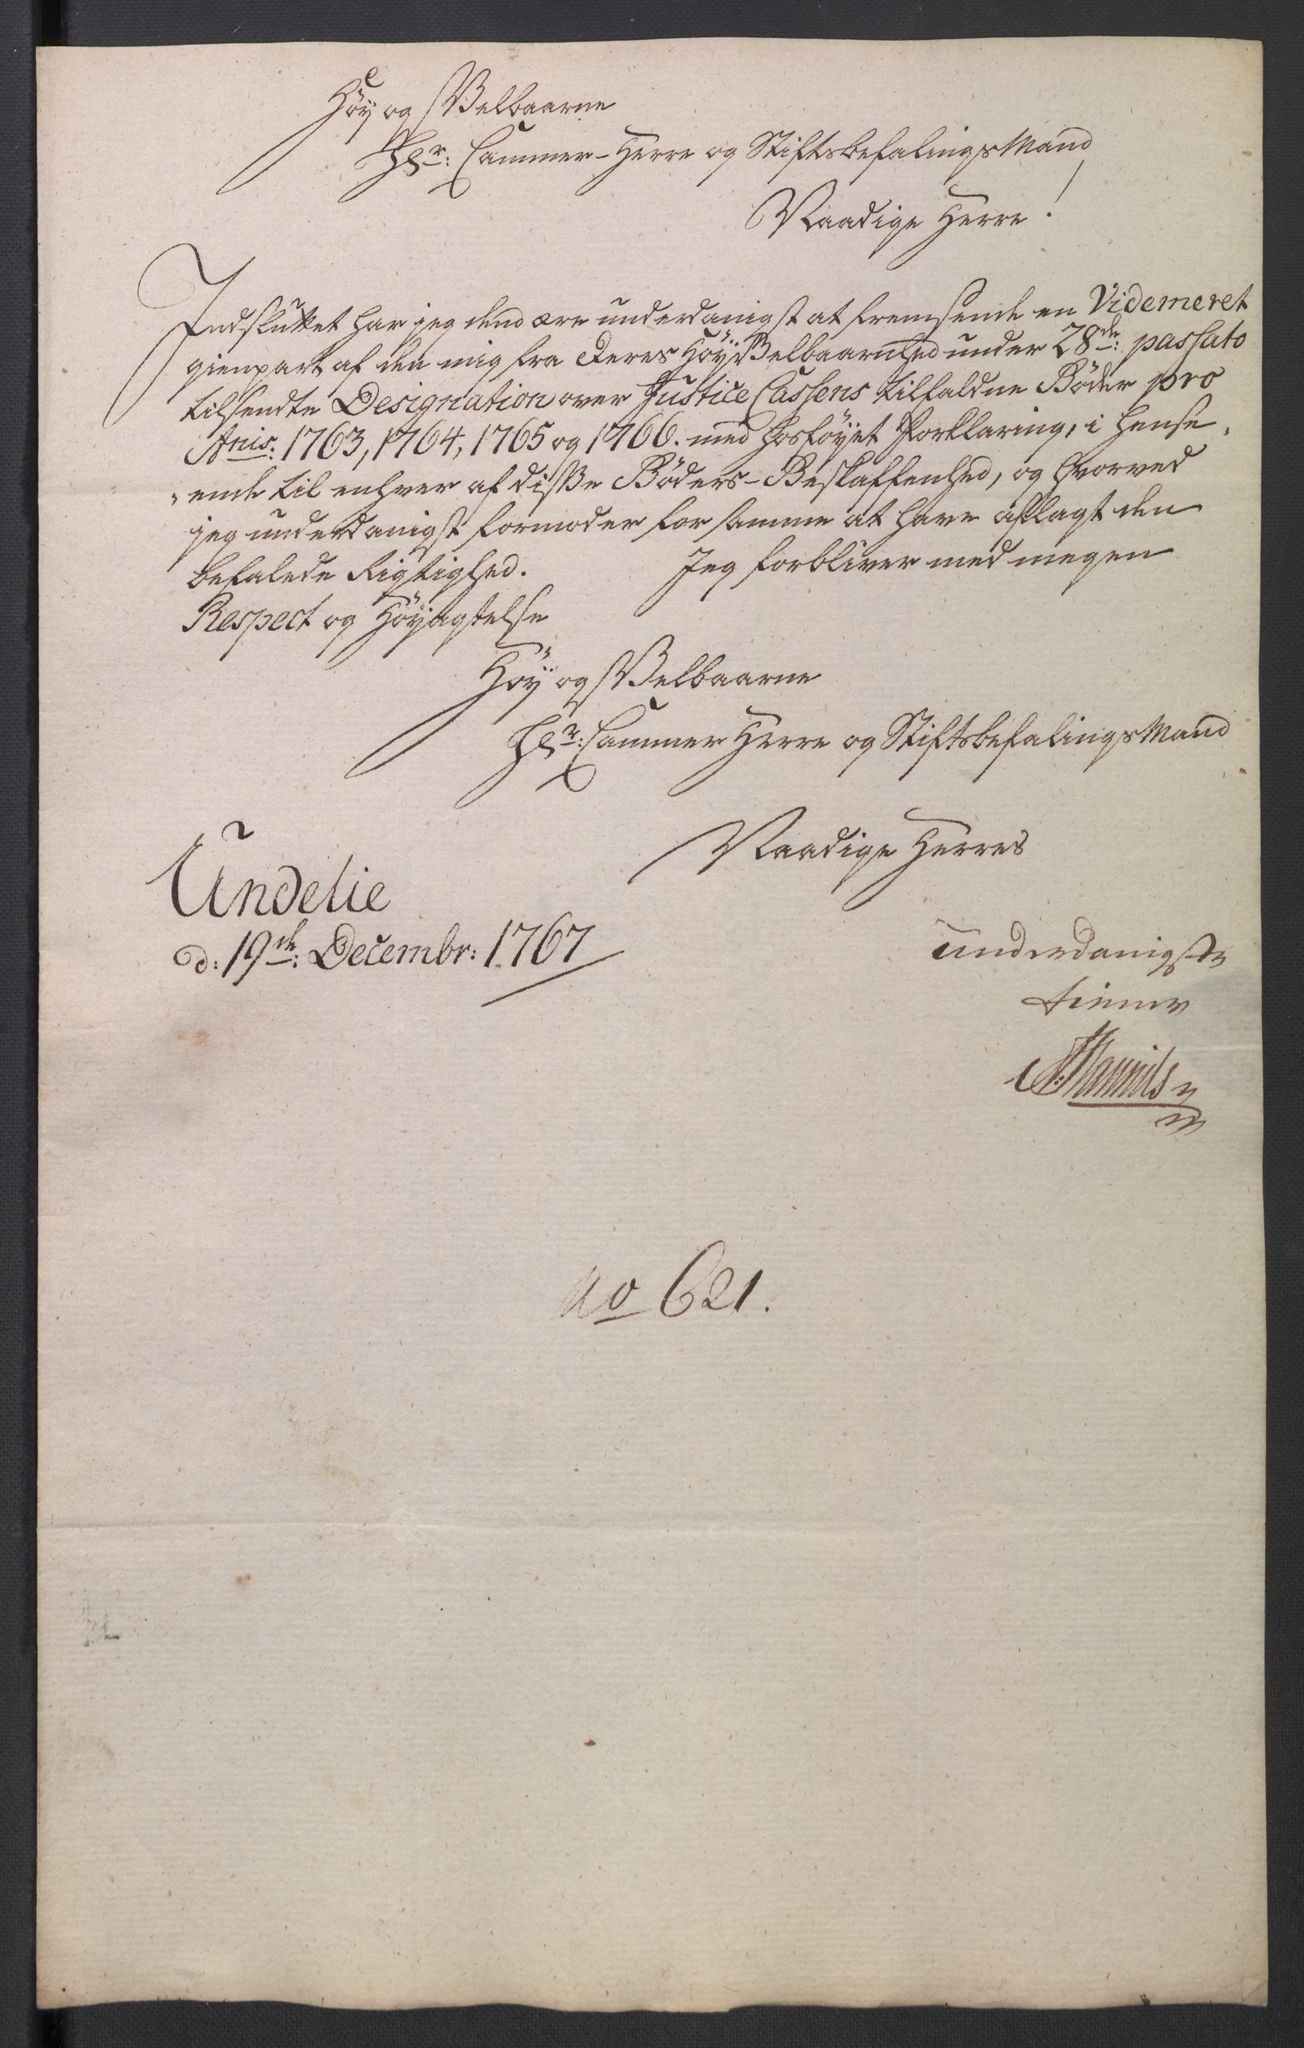 Høy og Velbaarne
Hr: Cammer-Herre og Stiftsbefalings Mand
Naadige Herre!
Indsluttet har jeg dend ære underdanigst at fremsende en Videmeret
gienpart af den mig fra Deres HøyVelbaarenhed under 28de: passato
tilsendte Designation over Justice Cassens tilfaldne Bøder pro
Anis: 1763, 1764, 1765 og 1766. med hosføyet Forklaring, i hense-
ende til enhver af disse Bøders-Beskaffenhed, og hvorved
jeg underdanigst formoder for samme at have aflagt den
befalede Rigtighed. Jeg forbliver med megen
Respect og Høyagtelse
Høy og Velbaarne
Hr: Cammer Herre og Stiftsbefalings Mand
Naadige Herres
Undelie
d: 19de: Decembr: 1767
underdanigste
tiener
no 621.